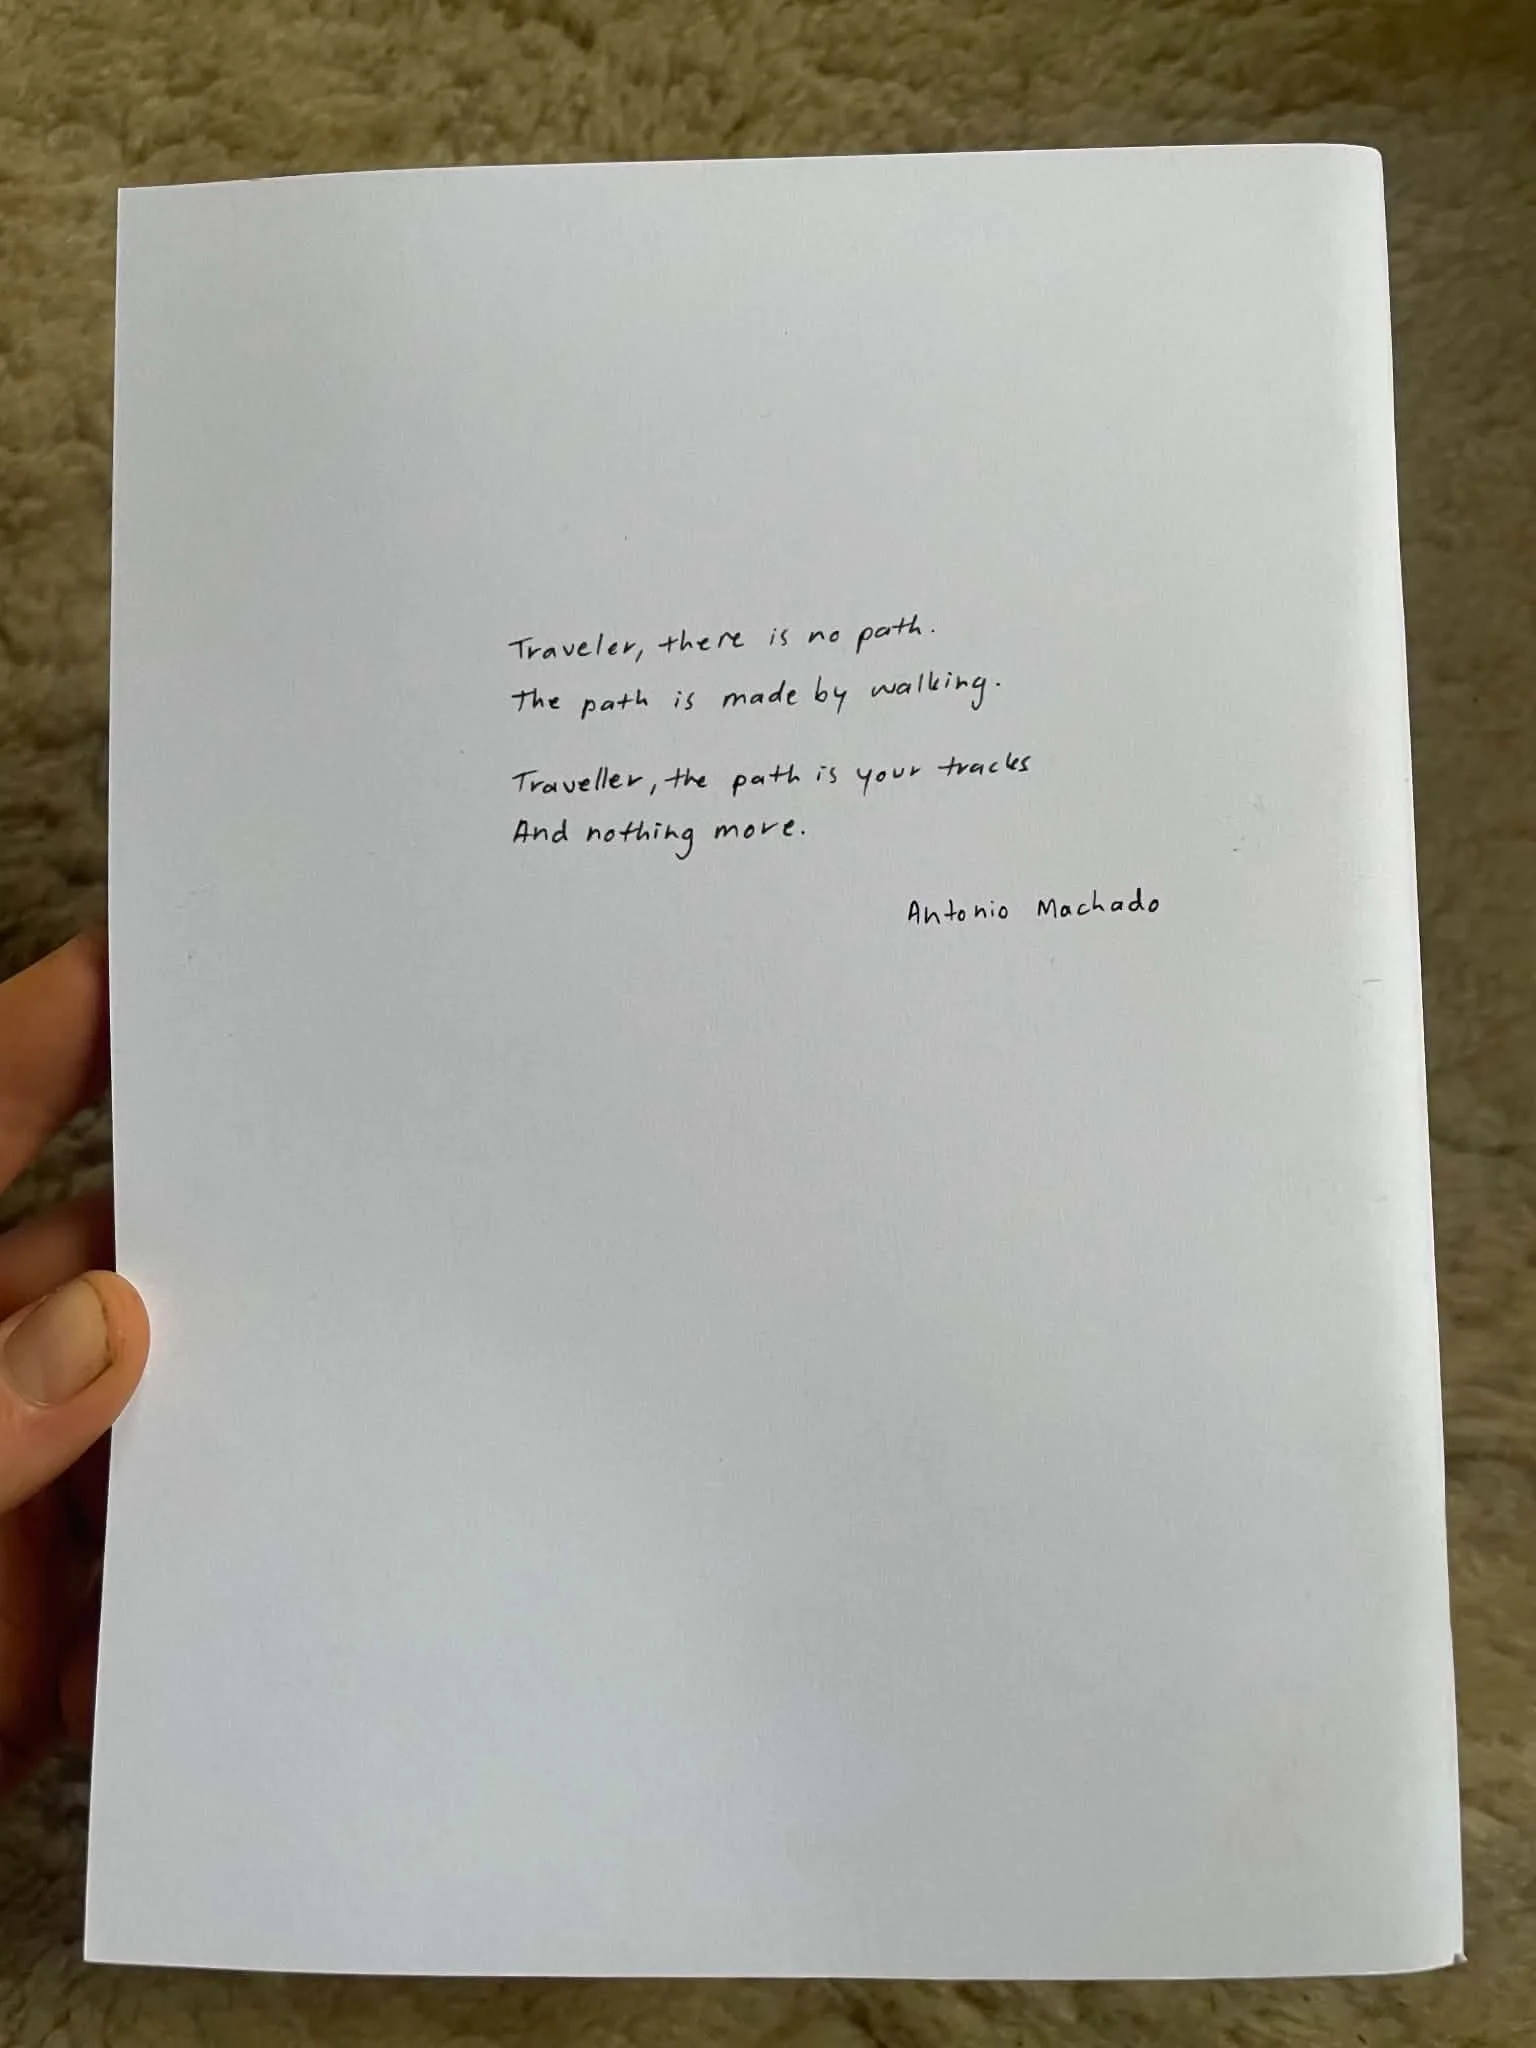 Traveler, there is no path.
The path is made by walking.
Traveller, the path is your tracks
And nothing more.
Antonio Machado